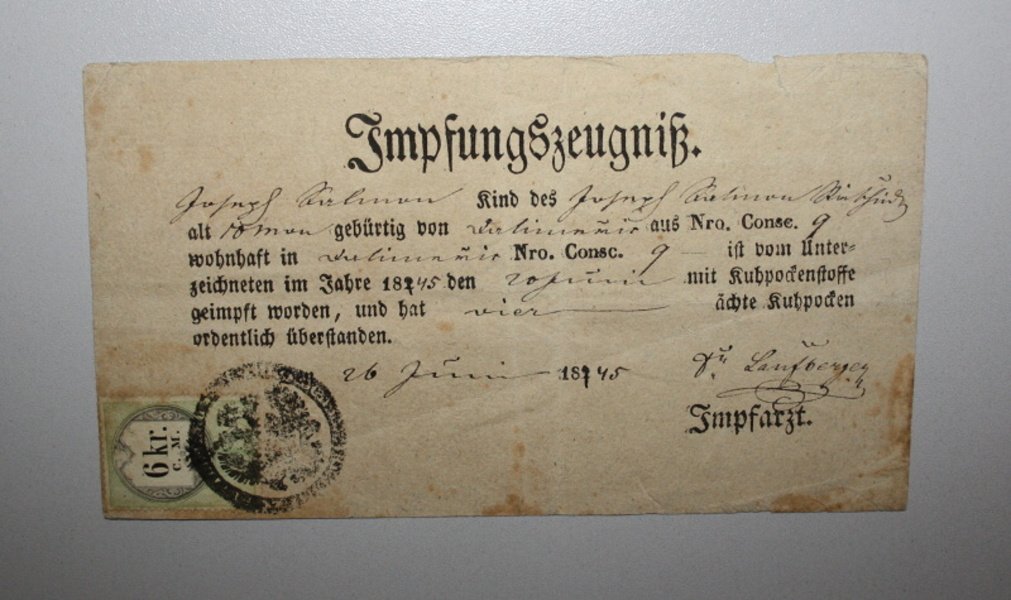 Impfungszeugniß.
Joseph Salmon Kind des Joseph Salmon
alt 10 mon gebürtig von aus Nro. Consc. 9
wohnhaft in Nro. Consc. 9 — ist vom Unter-
zeichneten im Jahre 1845 den 20 Juni mit Kuhpockenstoffe
geimpft worden, und hat vier ächte Kuhpocken
ordentlich überstanden.
26 Juni 1845 Dr Laufberger
Impfarzt.
6 kr.
C. M.